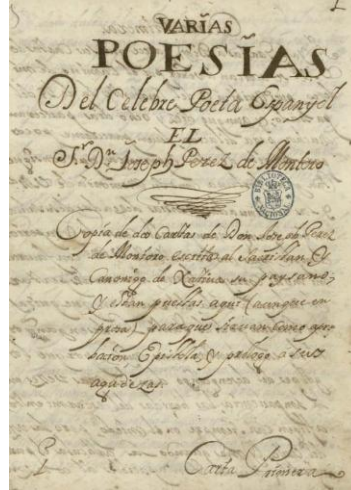 VARIAS
POESIAS
Del Celebre Poeta Espanyol
EL
S.r D.n Joseph Perez de Montoro
BIBLIOTECA NACIONAL
Copia de dos Cartas de Don Joseph Perez
de Montoro escritas al Sacristan, y
Canonigo de Xativa su paysano,
y estan puestas aqui (aunque en
prosa) para que sirvan como apro-
bacion Epistola, y prologo a sus
agudezas.
Carta Primera